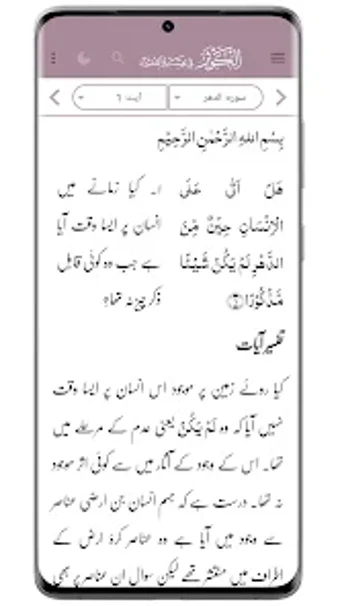 الکوثر فی تفسیر القرآن
سورہ الدھر
آیت 1
بِسْمِ اللہِ الرَّحْمٰنِ الرَّحِیْمِ
ہَلۡ اَتٰی عَلَی
الۡاِنۡسَانِ حِیۡنٌ مِّنَ
الدَّہۡرِ لَمۡ یَکُنۡ شَیۡئًا
مَّذۡکُوۡرًا﴿۱﴾
۱۔ کیا زمانے میں
انسان پر ایسا وقت آیا
ہے جب وہ کوئی قابل
ذکر چیز نہ تھا؟
تفسیر آیات
کیا روئے زمین پر موجود اس انسان پر ایسا وقت
نہیں آیا کہ وہ لَمۡ یَکُنۡ یعنی عدم کے مرحلے میں
تھا۔ اس کے وجود کے آثار میں سے کوئی اثر موجود
نہ تھا۔ درست ہے کہ جسم انسان جن ارضی عناصر
سے وجود میں آیا ہے وہ عناصر کرۂ ارض کے
اطراف میں منتشر تھے لیکن سوال ان عناصر پر بھی